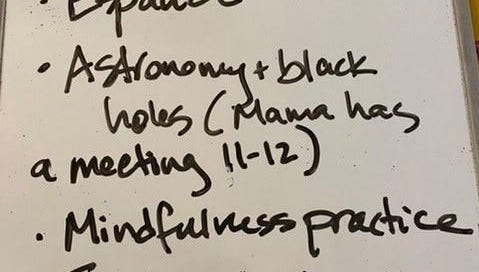 • Español
• Astronomy + black
holes (Mama has
a meeting 11-12)
• Mindfulness practice